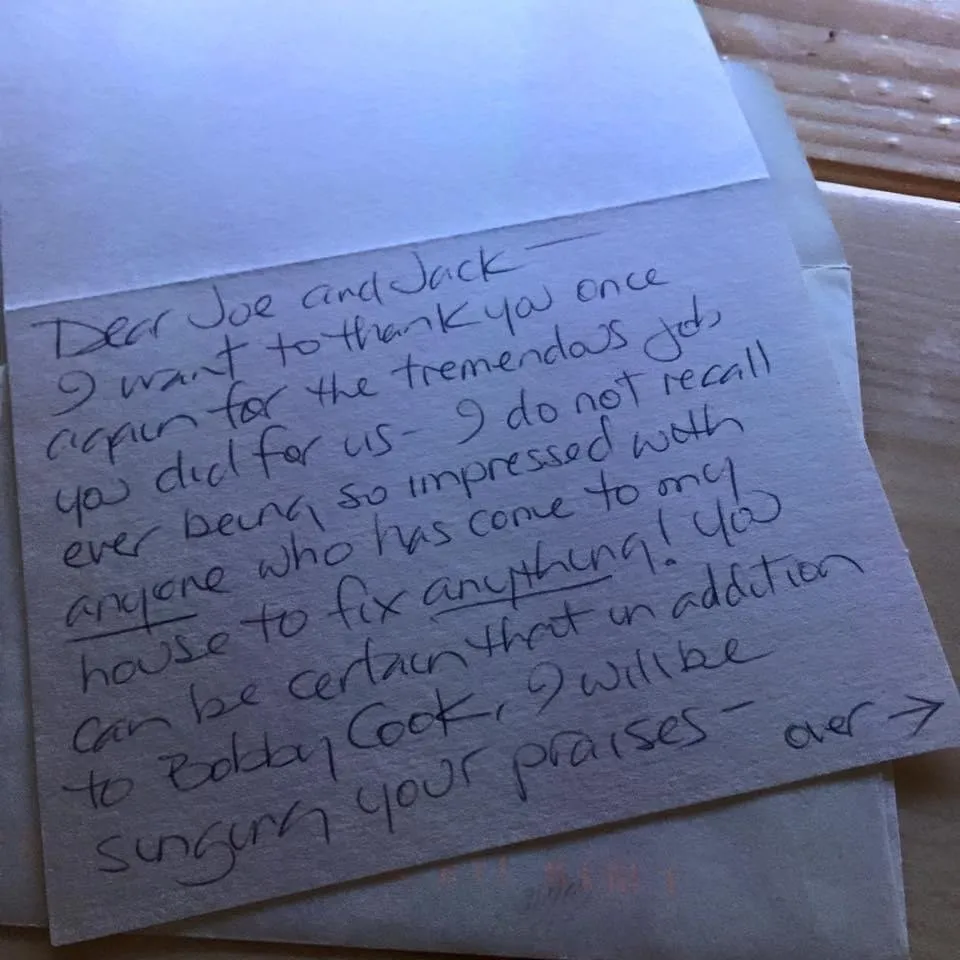 Dear Joe and Jack —
I want to thank you once
again for the tremendous job
you did for us - I do not recall
ever being so impressed with
anyone who has come to my
house to fix anything! You
can be certain that in addition
to Bobby Cook, I will be
singing your praises - over →